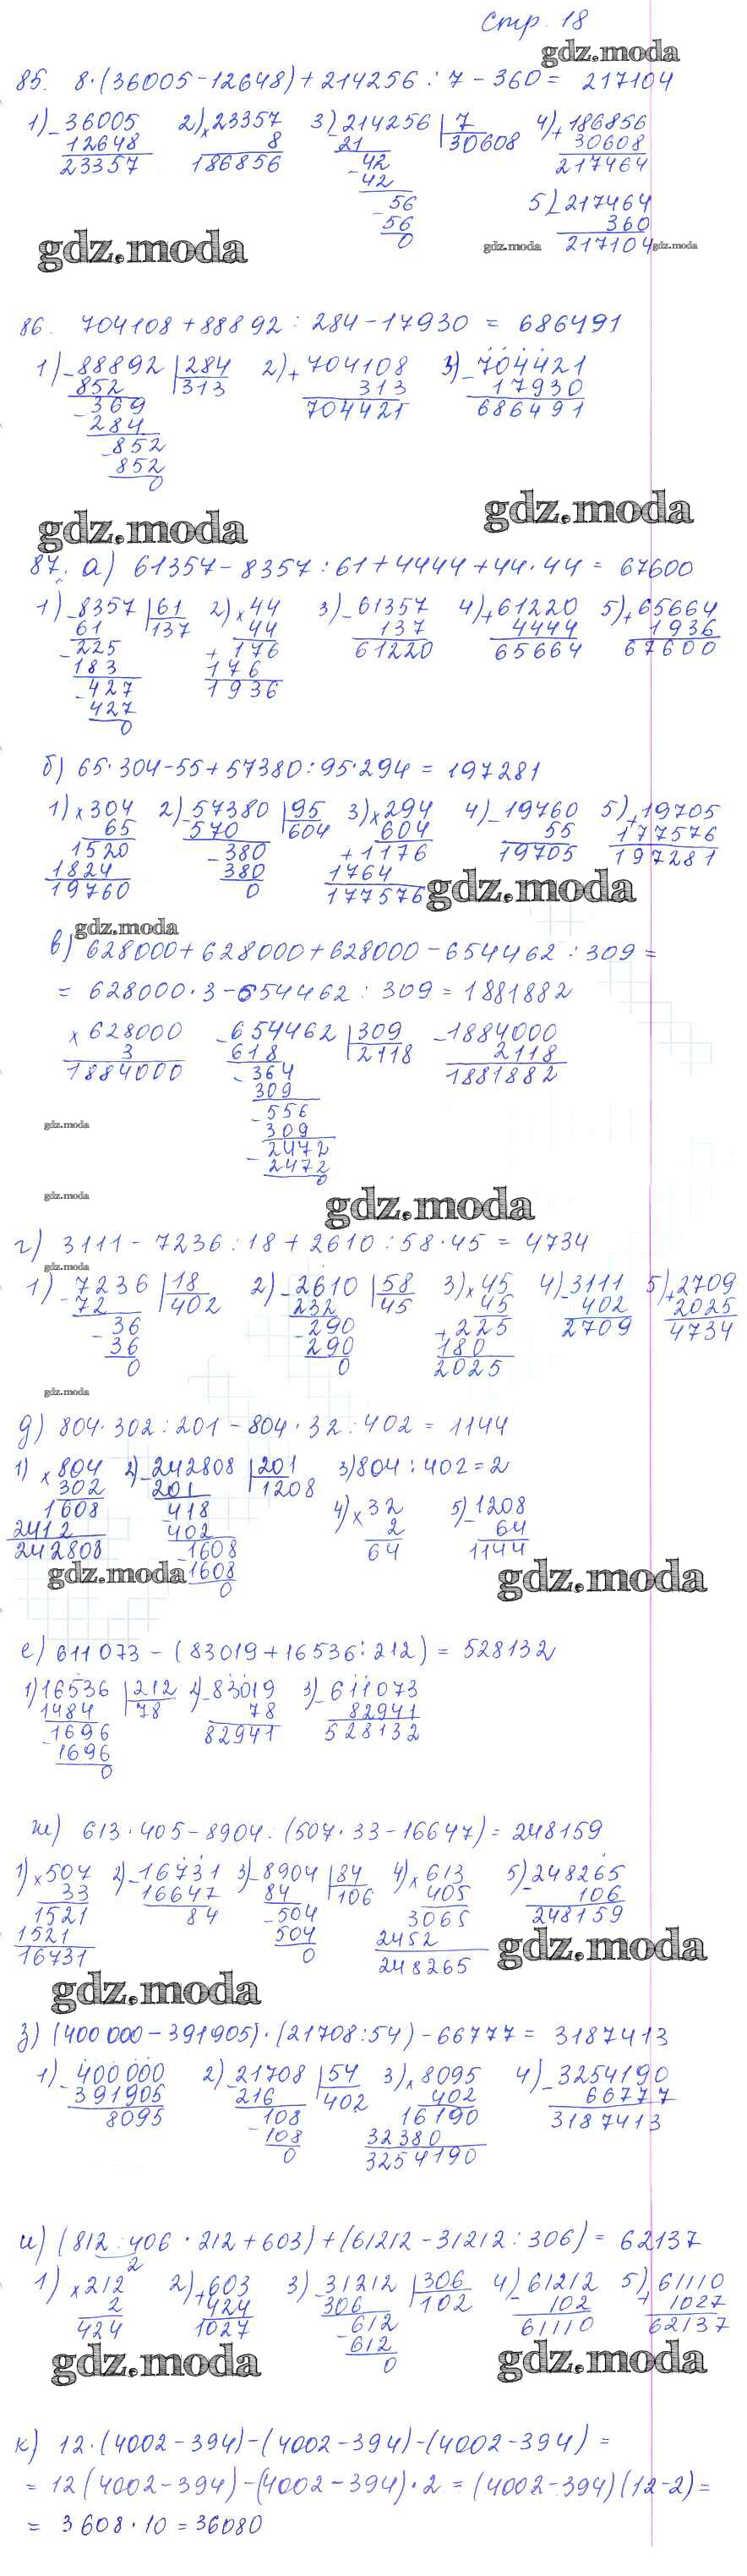 Стр. 18
gdz.moda
85. 8·(36005-12648)+214256:7-360= 217104
1) - 36005 2) × 23357 3) - 214256 | 7 4) + 186856
12648 8 21 30608 30608
23357 186856 - 42 217464
42
- 56 5) - 217464
56 360
0 217104
gdz.moda gdz.moda gdz.moda
86. 704108+88892:284-17930 = 686491
1) - 88892 | 284 2) + 704108 3) - 704421
852 313 313 17930
- 369 704421 686491
284
- 852
852
0
gdz.moda gdz.moda
87. а) 61357-8357:61+4444+44·44 = 67600
1) - 8357 | 61 2) × 44 3) - 61357 4) + 61220 5) + 65664
61 137 44 137 4444 1936
- 225 + 176 61220 65664 67600
183 176
- 427 1936
427
0
б) 65·304-55+57380:95·294 = 197281
1) × 304 2) - 57380 | 95 3) × 294 4) - 19760 5) + 19705
65 570 604 604 55 177576
1520 - 380 + 1176 19705 197281
1824 380 1764
19760 0 177576 gdz.moda
gdz.moda
в) 628000+628000+628000-654462:309=
= 628000·3-654462:309=1881882
× 628000 - 654462 | 309 - 1884000
3 618 2118 2118
1884000 - 364 1881882
309
- 556
309
- 2472
2472
0
gdz.moda
gdz.moda
gdz.moda
г) 3111-7236:18+2610:58·45=4734
gdz.moda
1) - 7236 | 18 2) - 2610 | 58 3) × 45 4) - 3111 5) + 2709
72 402 232 45 45 402 2025
- 36 - 290 + 225 2709 4734
36 290 180
0 0 2025
gdz.moda
д) 804·302:201-804·32:402 = 1144
1) × 804 2) - 242808 | 201 3) 804:402=2
302 201 1208
1608 - 418 4) × 32 5) - 1208
2412 402 2 64
242808 - 1608 64 1144
gdz.moda 1608 gdz.moda
0
е) 611073-(83019+16536:212) = 528132
1) 16536 | 212 2) - 83019 3) - 611073
1484 78 78 82941
- 1696 82941 528132
1696
0
ж) 613·405-8904:(507·33-16647)=248159
1) × 507 2) - 16731 3) - 8904 | 84 4) × 613 5) - 248265
33 16647 84 106 405 106
1521 84 - 504 3065 248159
1521 504 2452 gdz.moda
16731 0 248265
gdz.moda
з) (400000-391905)·(21708:54)-66777= 3187413
1) - 400000 2) - 21708 | 54 3) × 8095 4) - 3254190
391905 216 402 402 66777
8095 108 16190 3187413
- 108 32380
0 3254190
и) (812:406·212+603)+(61212-31212:306)=62137
2
1) × 212 2) + 603 3) - 31212 | 306 4) - 61212 5) + 61110
2 424 306 102 102 1027
424 1027 - 612 61110 62137
612
0
gdz.moda gdz.moda
к) 12·(4002-394)-(4002-394)-(4002-394)=
= 12(4002-394)-(4002-394)·2=(4002-394)(12-2)=
= 3608·10=36080